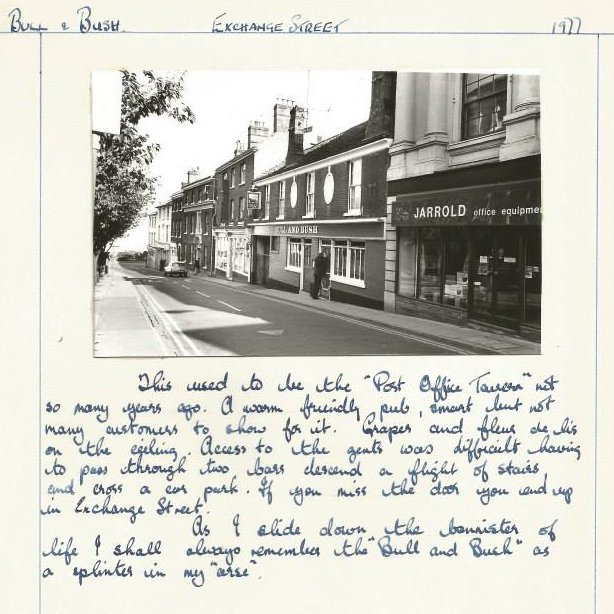 BULL & BUSH. EXCHANGE STREET 1977
BULL AND BUSH
JARROLD office equipmen
This used to be the "Post Office Tavern" not
so many years ago. A warm friendly pub, smart but not
many customers to show for it. Grapes and fleur de lis
on the ceiling. Access to the gents was difficult having
to pass through two bars descend a flight of stairs
and cross a car park. If you miss the door you end up
in Exchange Street.
As I slide down the bannister of
life I shall always remember the "Bull and Bush" as
a splinter in my "arse".